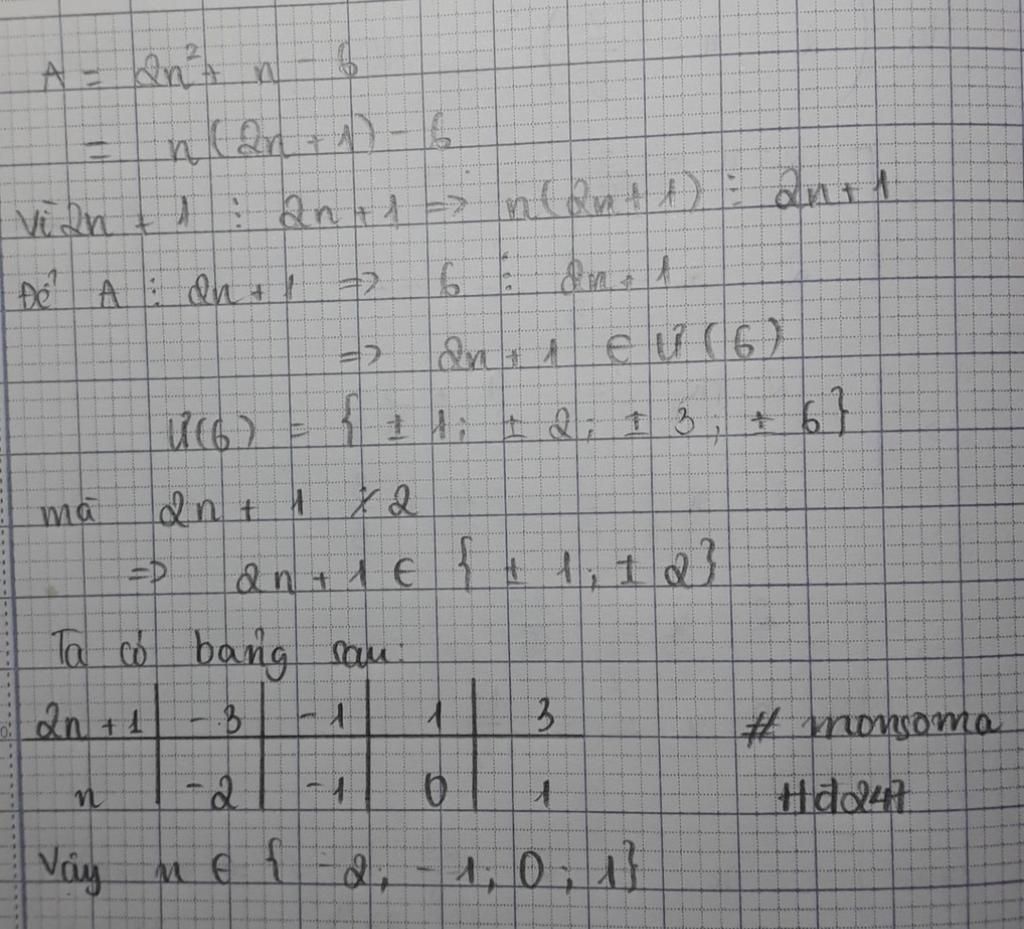 A = 2n² + n - 6
= n(2n + 1) - 6
Vì 2n + 1 ⋮ 2n + 1 => n(2n + 1) ⋮ 2n + 1
Để A ⋮ 2n + 1 => 6 ⋮ 2n + 1
=> 2n + 1 ∈ Ư(6)
Ư(6) = { ± 1; ± 2; ± 3; ± 6}
mà 2n + 1 ⋮̸ 2
=> 2n + 1 ∈ { ± 1; ± 2}
Ta có bảng sau:
2n + 1 | -3 | -1 | 1 | 3
# monsoma
n | -2 | -1 | 0 | 1
Hd247
Vậy n ∈ { -2; -1; 0; 1}